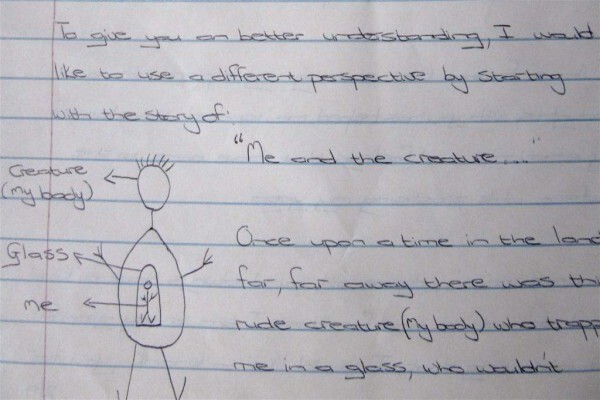 To give you an better understanding, I would
like to use a different perspective by starting
with the story of:
"Me and the creature...."
Creature
(My body)
Glass
me
Once upon a time in the land
far, far away there was thi
rude creature (My body) who trapp
me in a glass, who wouldn't